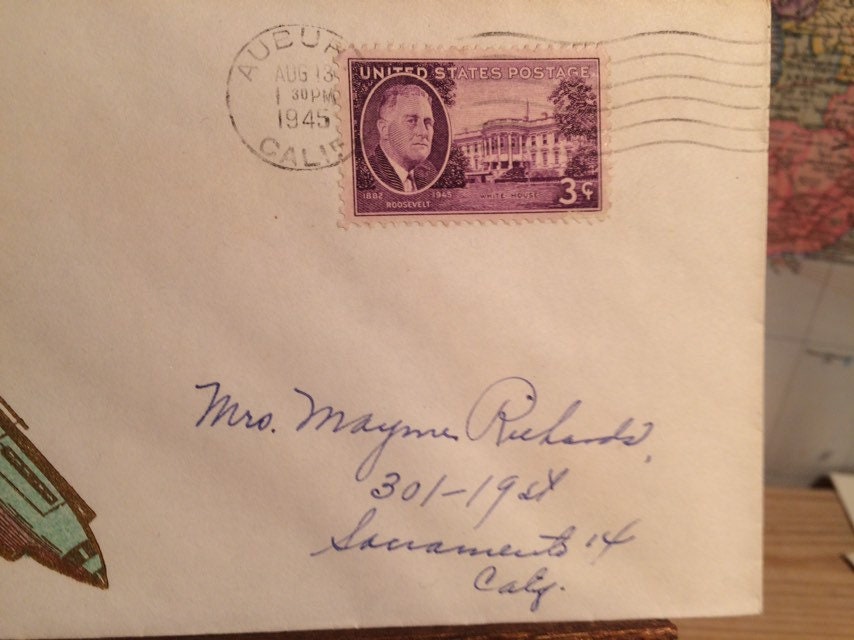 AUBUR
AUG 13
1 30PM
1945
CALIF
UNITED STATES POSTAGE
1882 1945
ROOSEVELT
WHITE HOUSE
3¢
Mrs. Mayme Richards,
301-19st
Sacramento 14
Calif.